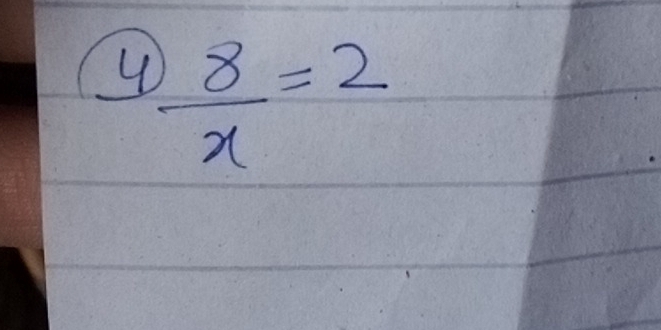 ④ 8/x = 2